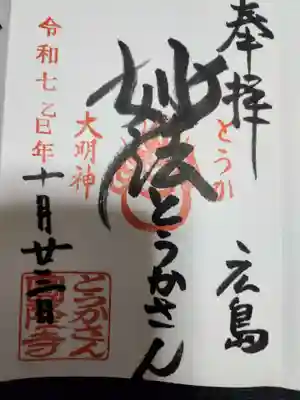 奉拝
広島
とうか
妙法とうかさん
大明神
令和七乙巳年
十月廿三日
とうかさん
圓隆寺